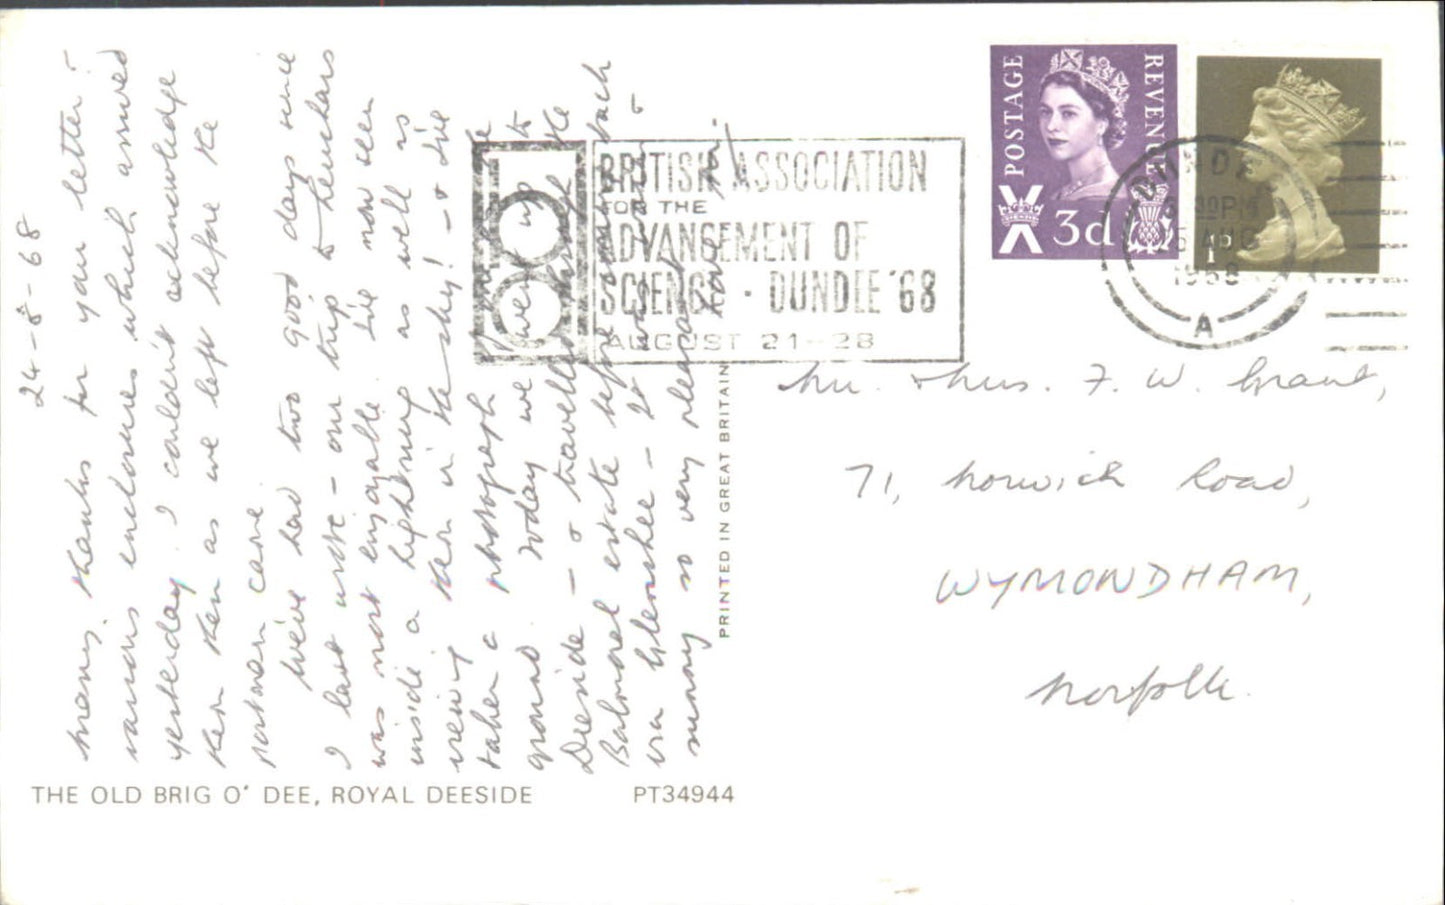 24-8-68
Many thanks for your letter +
various enclosures which arrived
yesterday. I couldn't acknowledge
them then as we left before the
postman came.
We've had two good days since
I last wrote - our trip to Leuchars
was most enjoyable. I've now seen
inside a lightning as well as
viewing them in the sky! - + I've
taken a photograph
ground. Today we went up to
Deeside - + travelled through the
Balmoral estate before coming back
via Glenshee - It was warm +
sunny so very pleasant. Love
THE OLD BRIG O' DEE, ROYAL DEESIDE
PT34944
PRINTED IN GREAT BRITAIN
BRITISH ASSOCIATION
FOR THE
ADVANCEMENT OF
SCIENCE · DUNDEE '68
AUGUST 21-28
POSTAGE
REVENUE
3d
DUNDEE
PM
AUG
1968
A
Mr. & Mrs. F. W. Grant,
71, Norwich Road,
WYMONDHAM,
Norfolk.